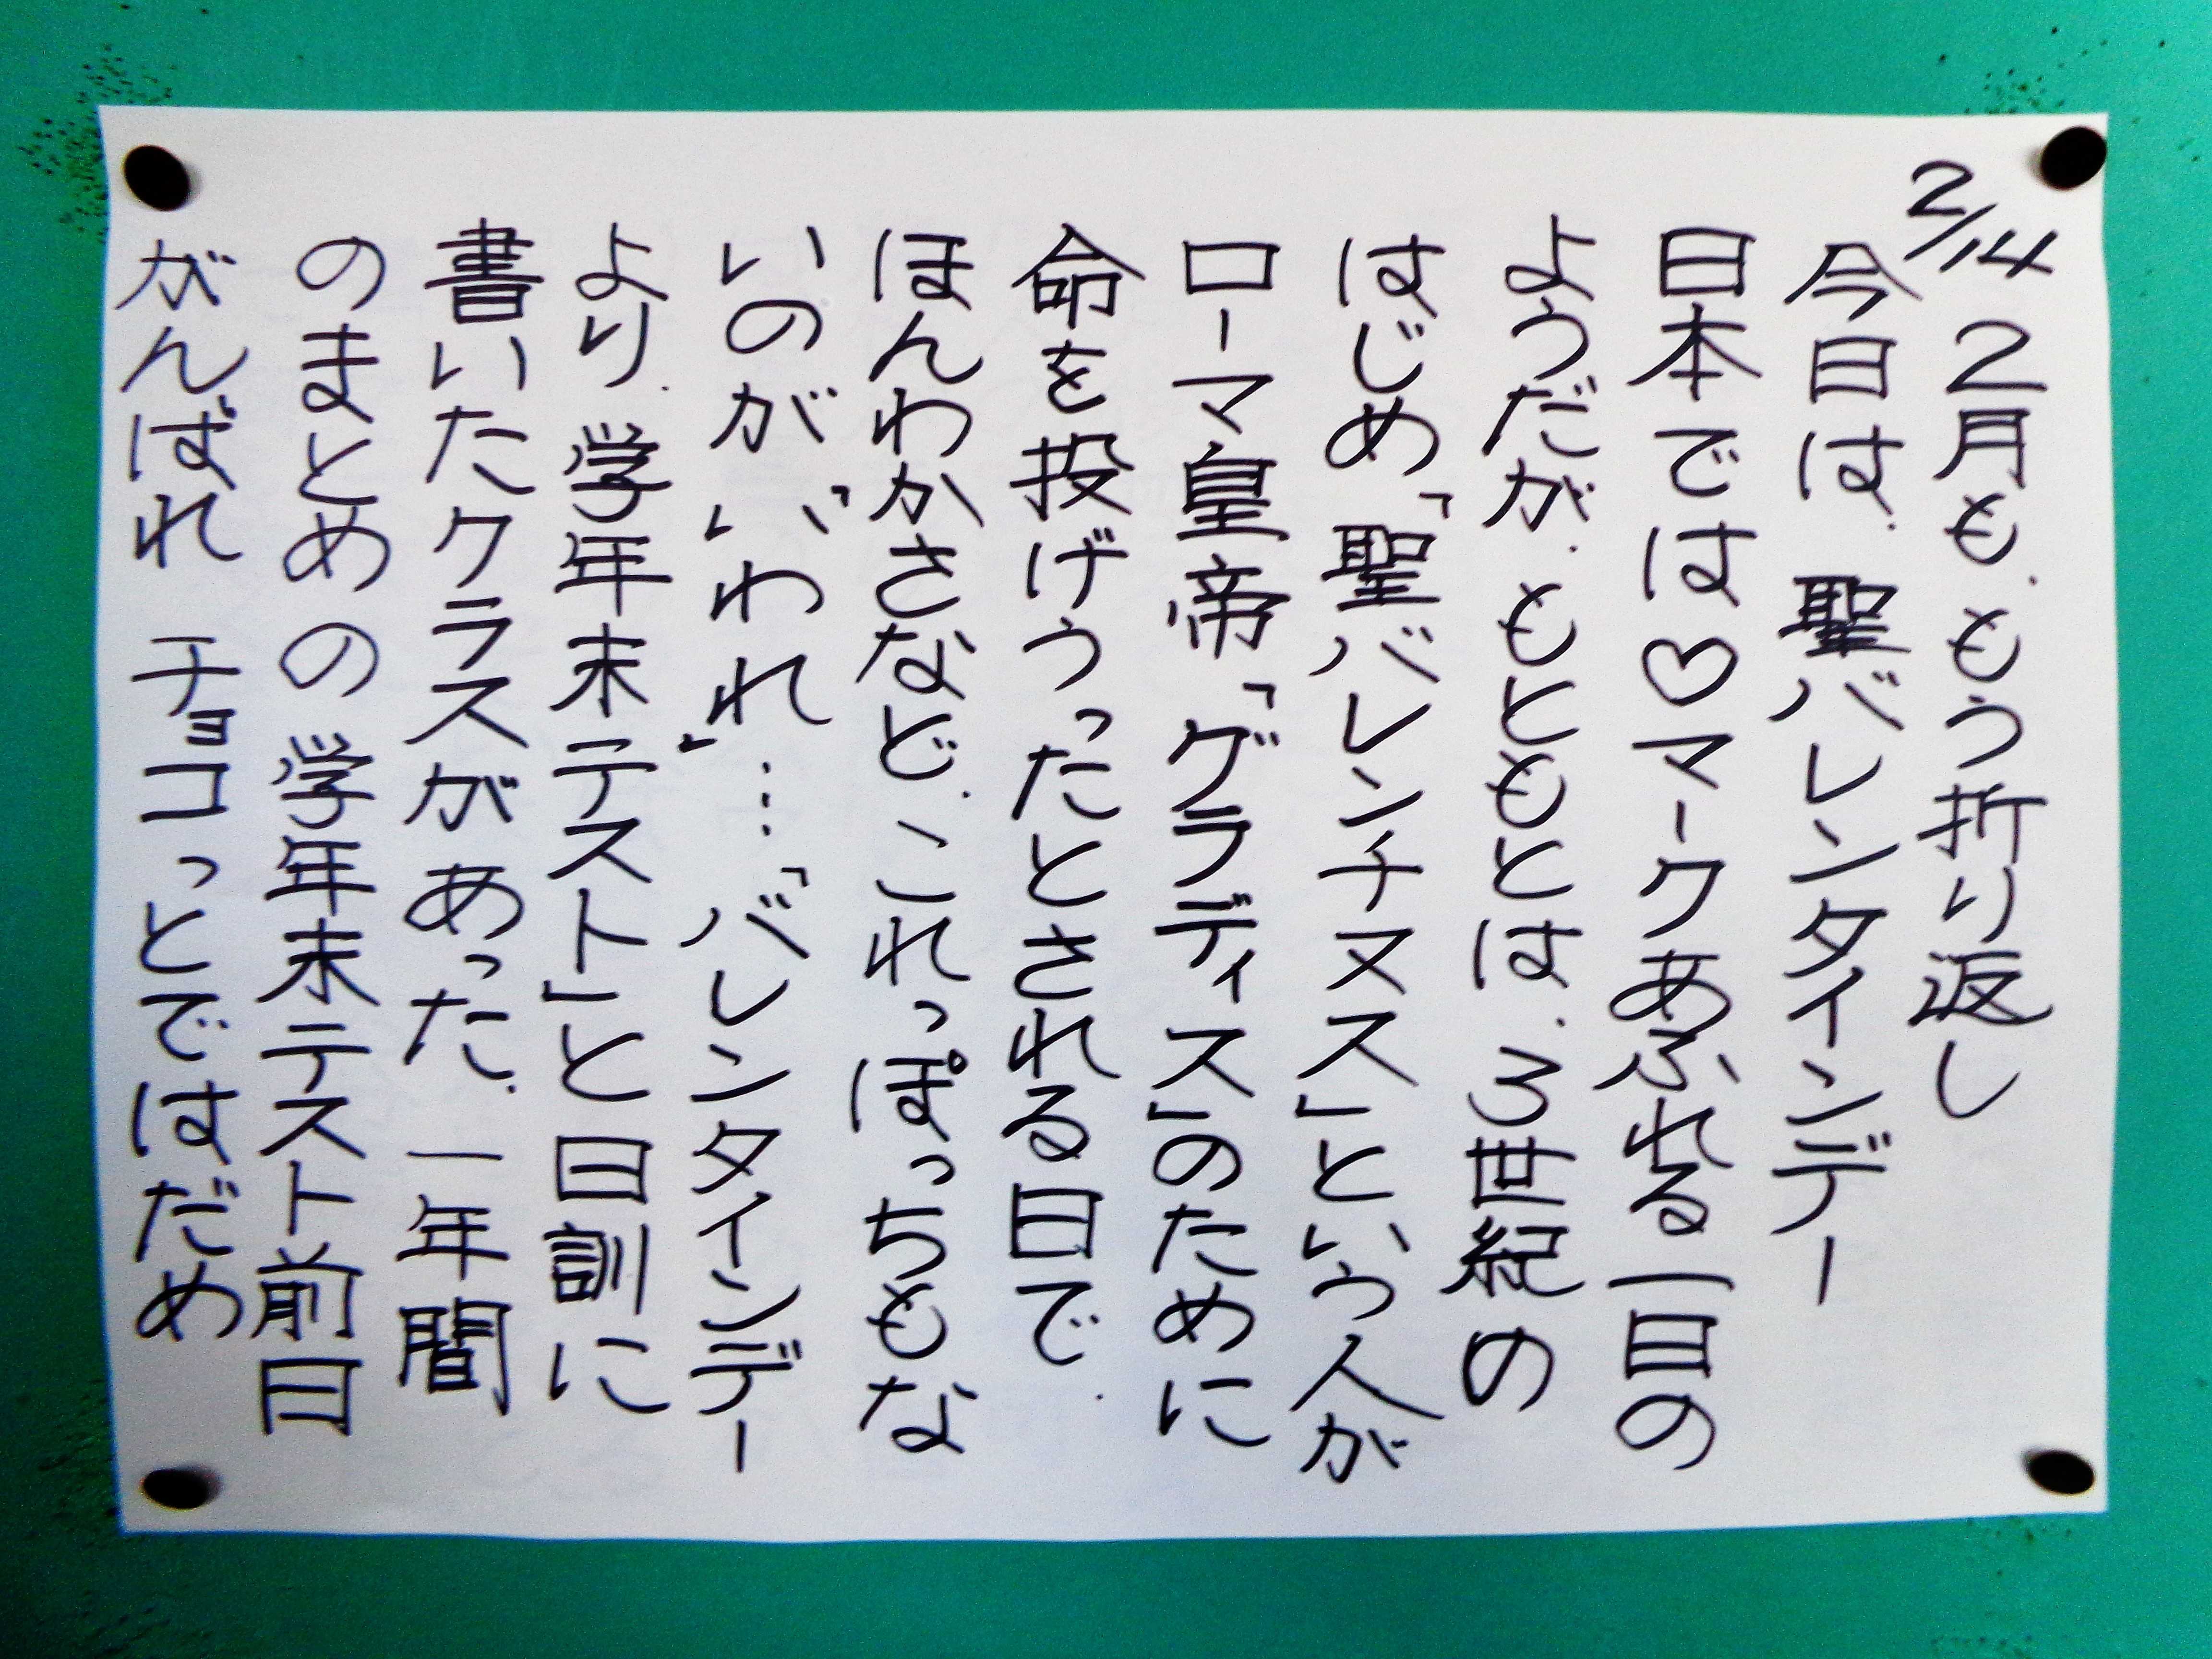 2/14 2月も、もう折り返し
今日は、聖バレンタインデー
日本では♡マークあふれる一日の
ようだが、もともとは、3世紀の
はじめ、「聖バレンチヌス」という人が
ローマ皇帝「グラディス」のために
命を投げうったとされる日で、
ほんわかさなど、これっぽっちもな
いのが、“いわれ”…、「バレンタインデー
より、学年末テスト」と日訓に
書いたクラスがあった、一年間
のまとめの学年末テスト前日
がんばれ チョコっとではだめ